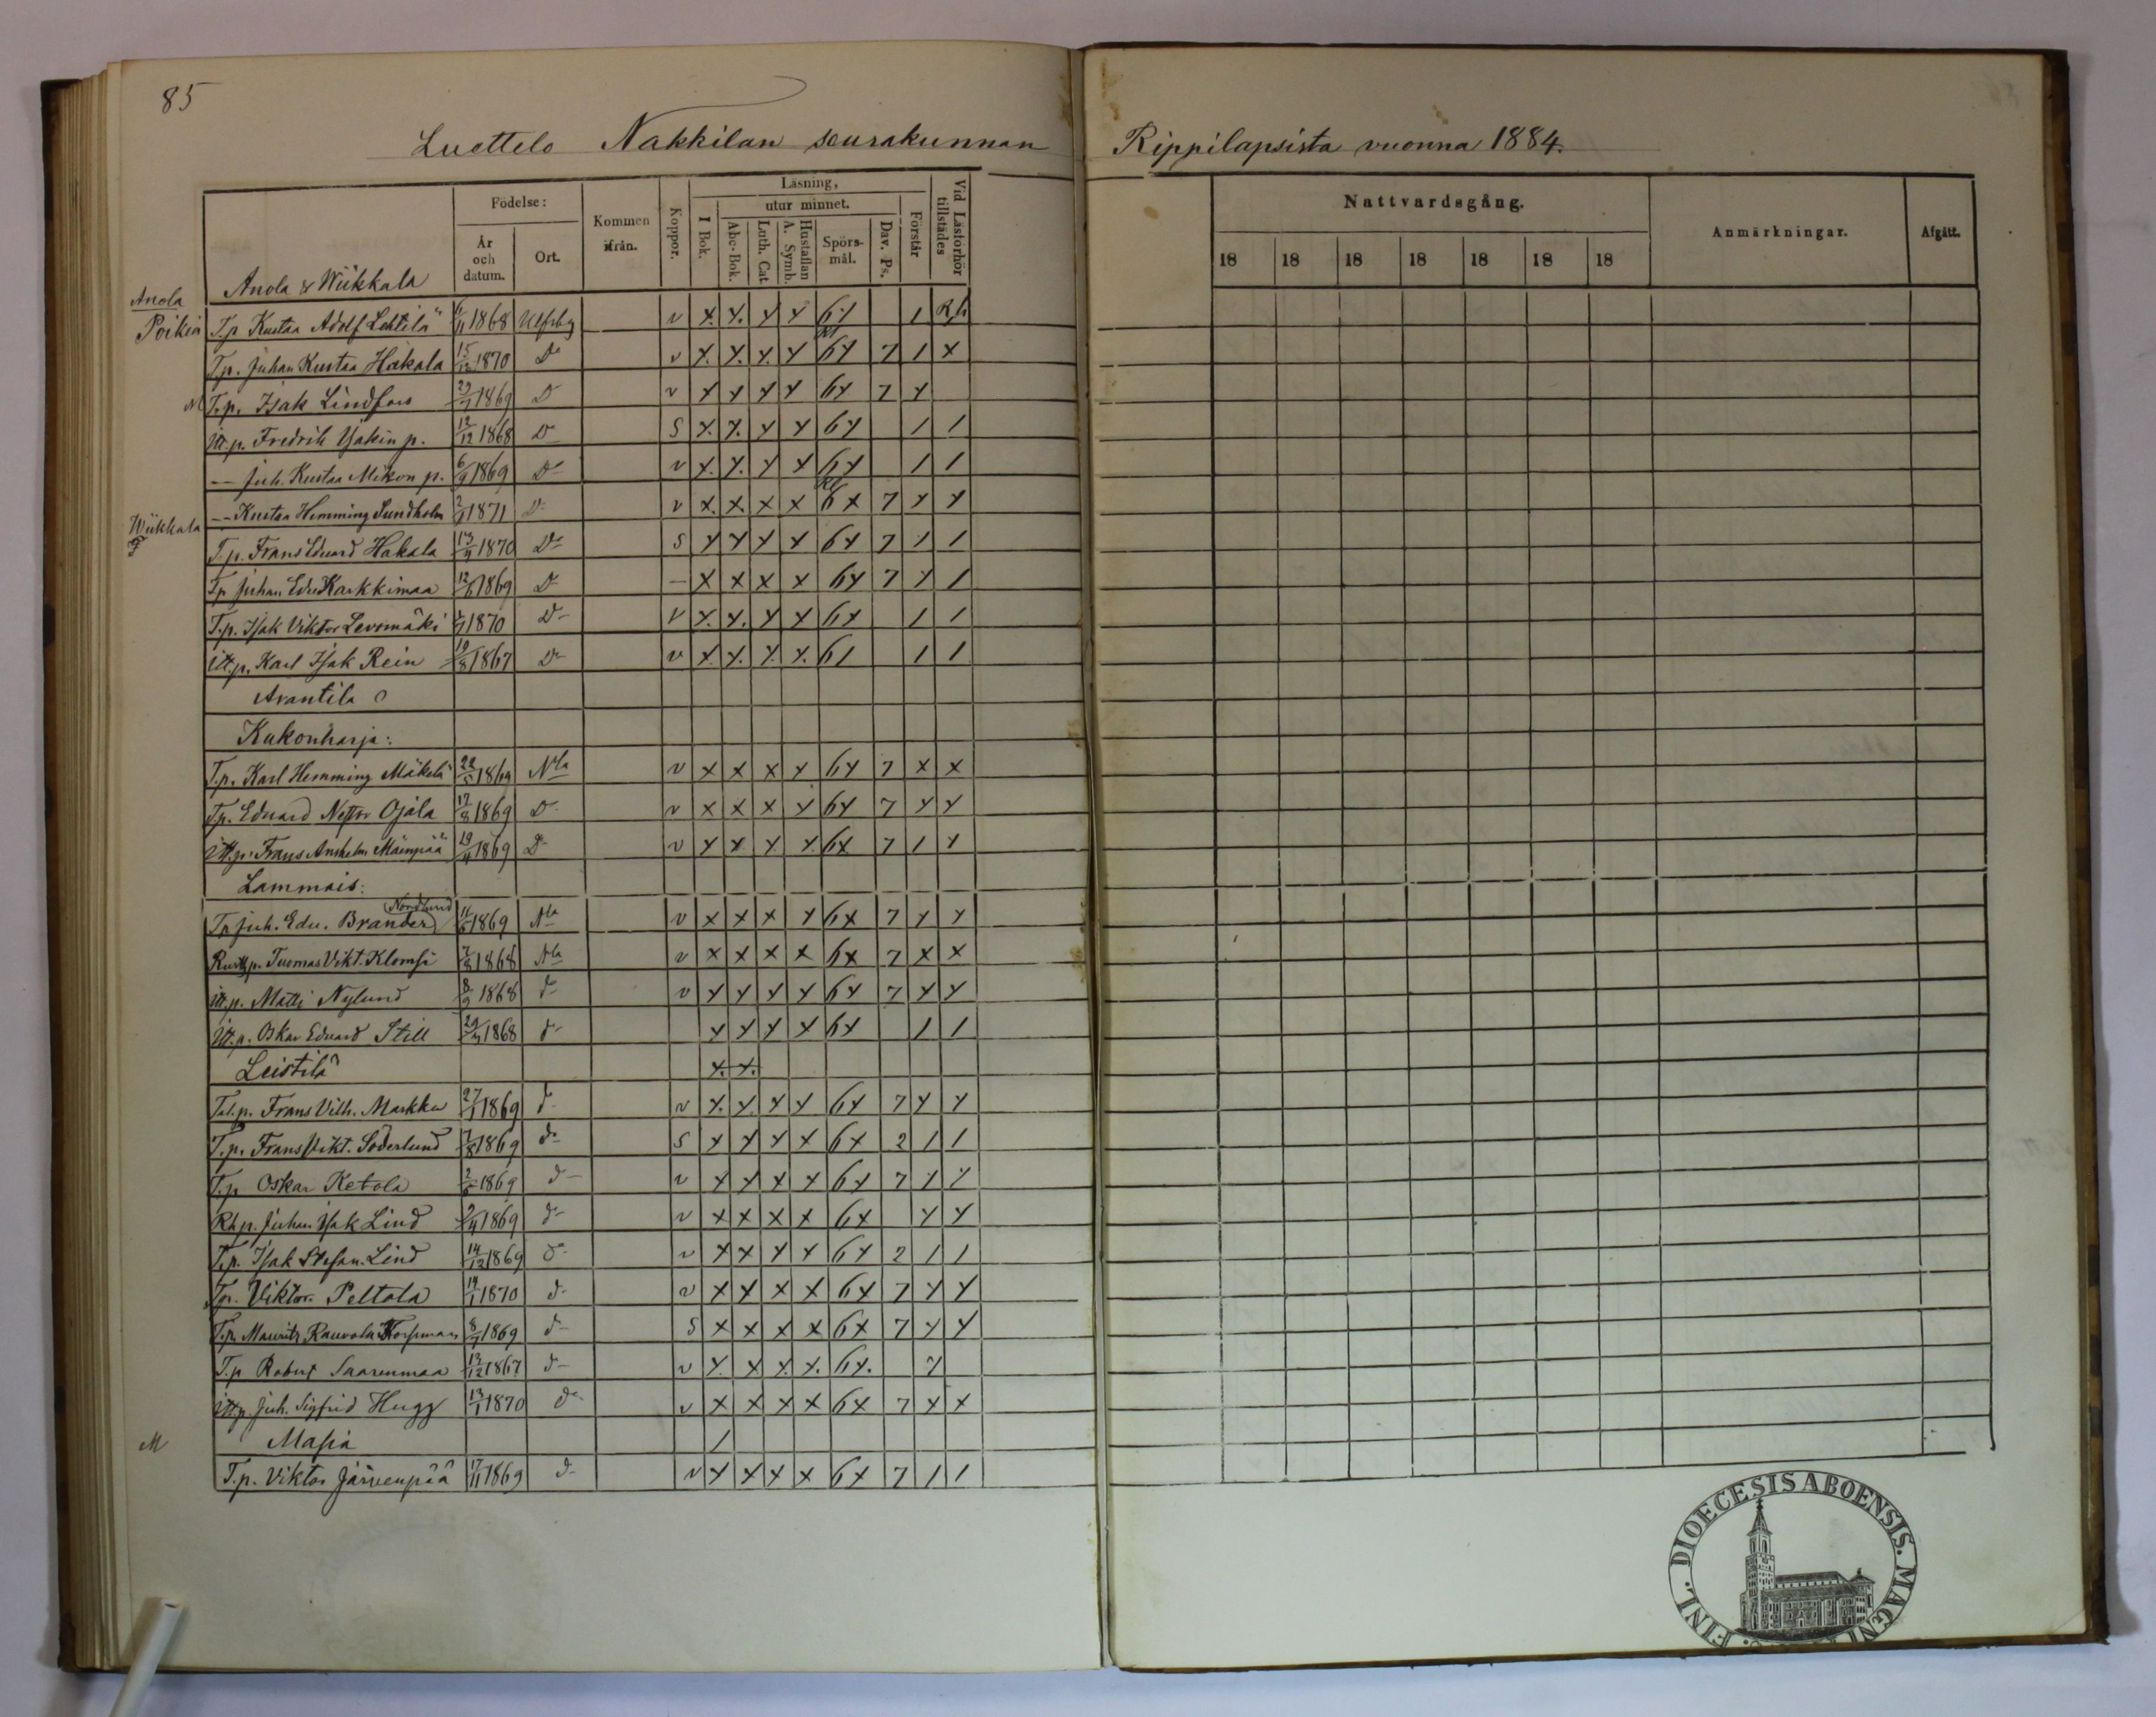 85
Luettelo Nakkilan seurakunnan Rippilapsista vuonna 1884.
Födelse: Läsning, utur minnet.
År och datum. Ort. Kommen ifrån. Koppor. I Bok. Abc-Bok. Luth. Cat. Hustaflan A. Symb. Spörs-mål. Dav. Ps. Förstår Vid Läsförhör tillstädes
Nattvardsgång. Anmärkningar. Afgått.
18 18 18 18 18 18 18
Anola & Wiikkala
Anola
Poikia
T.p Kustaa Adolf Lehtilä 6/11 1868 Ulfsby v x. x. x x 6x 1 R,h
T.p. Juhan Kustaa Hakala 15/12 1870 Do v x. x. x. x 6x 7 1 x
M T.p. Isak Lindfors 1869 D v x x x x 6x 7 x
Itt.p. Fredrik Isakin p. 12/12 1868 D S x. x. x x 6x 1 1
— Juh. Kustaa Mikon p. 6/9 1869 D v x. x. x x 6x 1 1
— Kustaa Hemming Sundholm 1871 D v x. x. x x 6x 7 x x
Wiikkala
T.p. Frans Eduard Hakala 1870 D S x x x x 6x 7 1 1
T.p Juhan Edv Karkkimaa 1869 D — x x x x 6x 7 x 1
T.p. Isak Viktor Levomäki 1870 D v x. x. x x 6x 1 1
Itt.p. Karl Isak Rein 19/8 1867 D v x. x. x. x. 61 1 1
Arantila
Kukonharja:
T.p. Karl Hemming Mäkelä 22/5 1869 Nla v x x x x 6x 7 x x
T.p. Eduard Nestor Ojala 17/8 1869 D v x x x x 6x 7 x x
Itt.p. Frans Anshelm Mäenpää 19/4 1869 D v x x x x. 6x 7 1 x
Lammais:
Nordlund
T.p Juh. Edv. Brander 1869 Nla v x x x x 6x 7 x x
Rustt.p. Tuomas Vikt. Klomsi 1868 Nla v x x x x 6x 7 x x
Itt.p. Matti Nylund 8/9 1868 d v x x x x 6x 7 x x
Itt.p. Oskar Eduard Still 1868 d x x x x 6x 1 1
Leistilä x. x.
Tal.p. Frans Vilh. Markku 27/1 1869 d v x. x. x x 6x 7 x x
T.p. Frans Vikt. Söderlund 1869 d S x x x x 6x 2 1 1
T.p Oskar Ketola 1869 d v x x x x 6x 7 1 1
Rh p. Juhan Isak Lind 1869 d v x x x x 6x x x
T.p. Isak Stefan. Lind 14/12 1869 d v x x x x 6x 2 1 1
T.p. Viktor Peltola 19/1 1870 d v x x x x 6x 7 x x
T.p. Mauritz Rauvola Forsman 1869 d S x x x x 6x 7 x x
T.p Robert Saarenmaa 13/12 1867 d v x. x x. x. 6x. x
Itt.p. Juh. Sigfrid Hugg 13/1 1870 d v x x x x 6x 7 x x
M Masia 1
T.p. Viktor Järvenpää 17/11 1869 d v x x x x 6x 7 1 1
FINL. DIOECESIS ABOENSIS. MAGNI